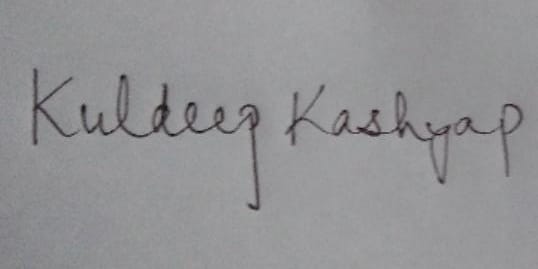 Kuldeep Kashyap